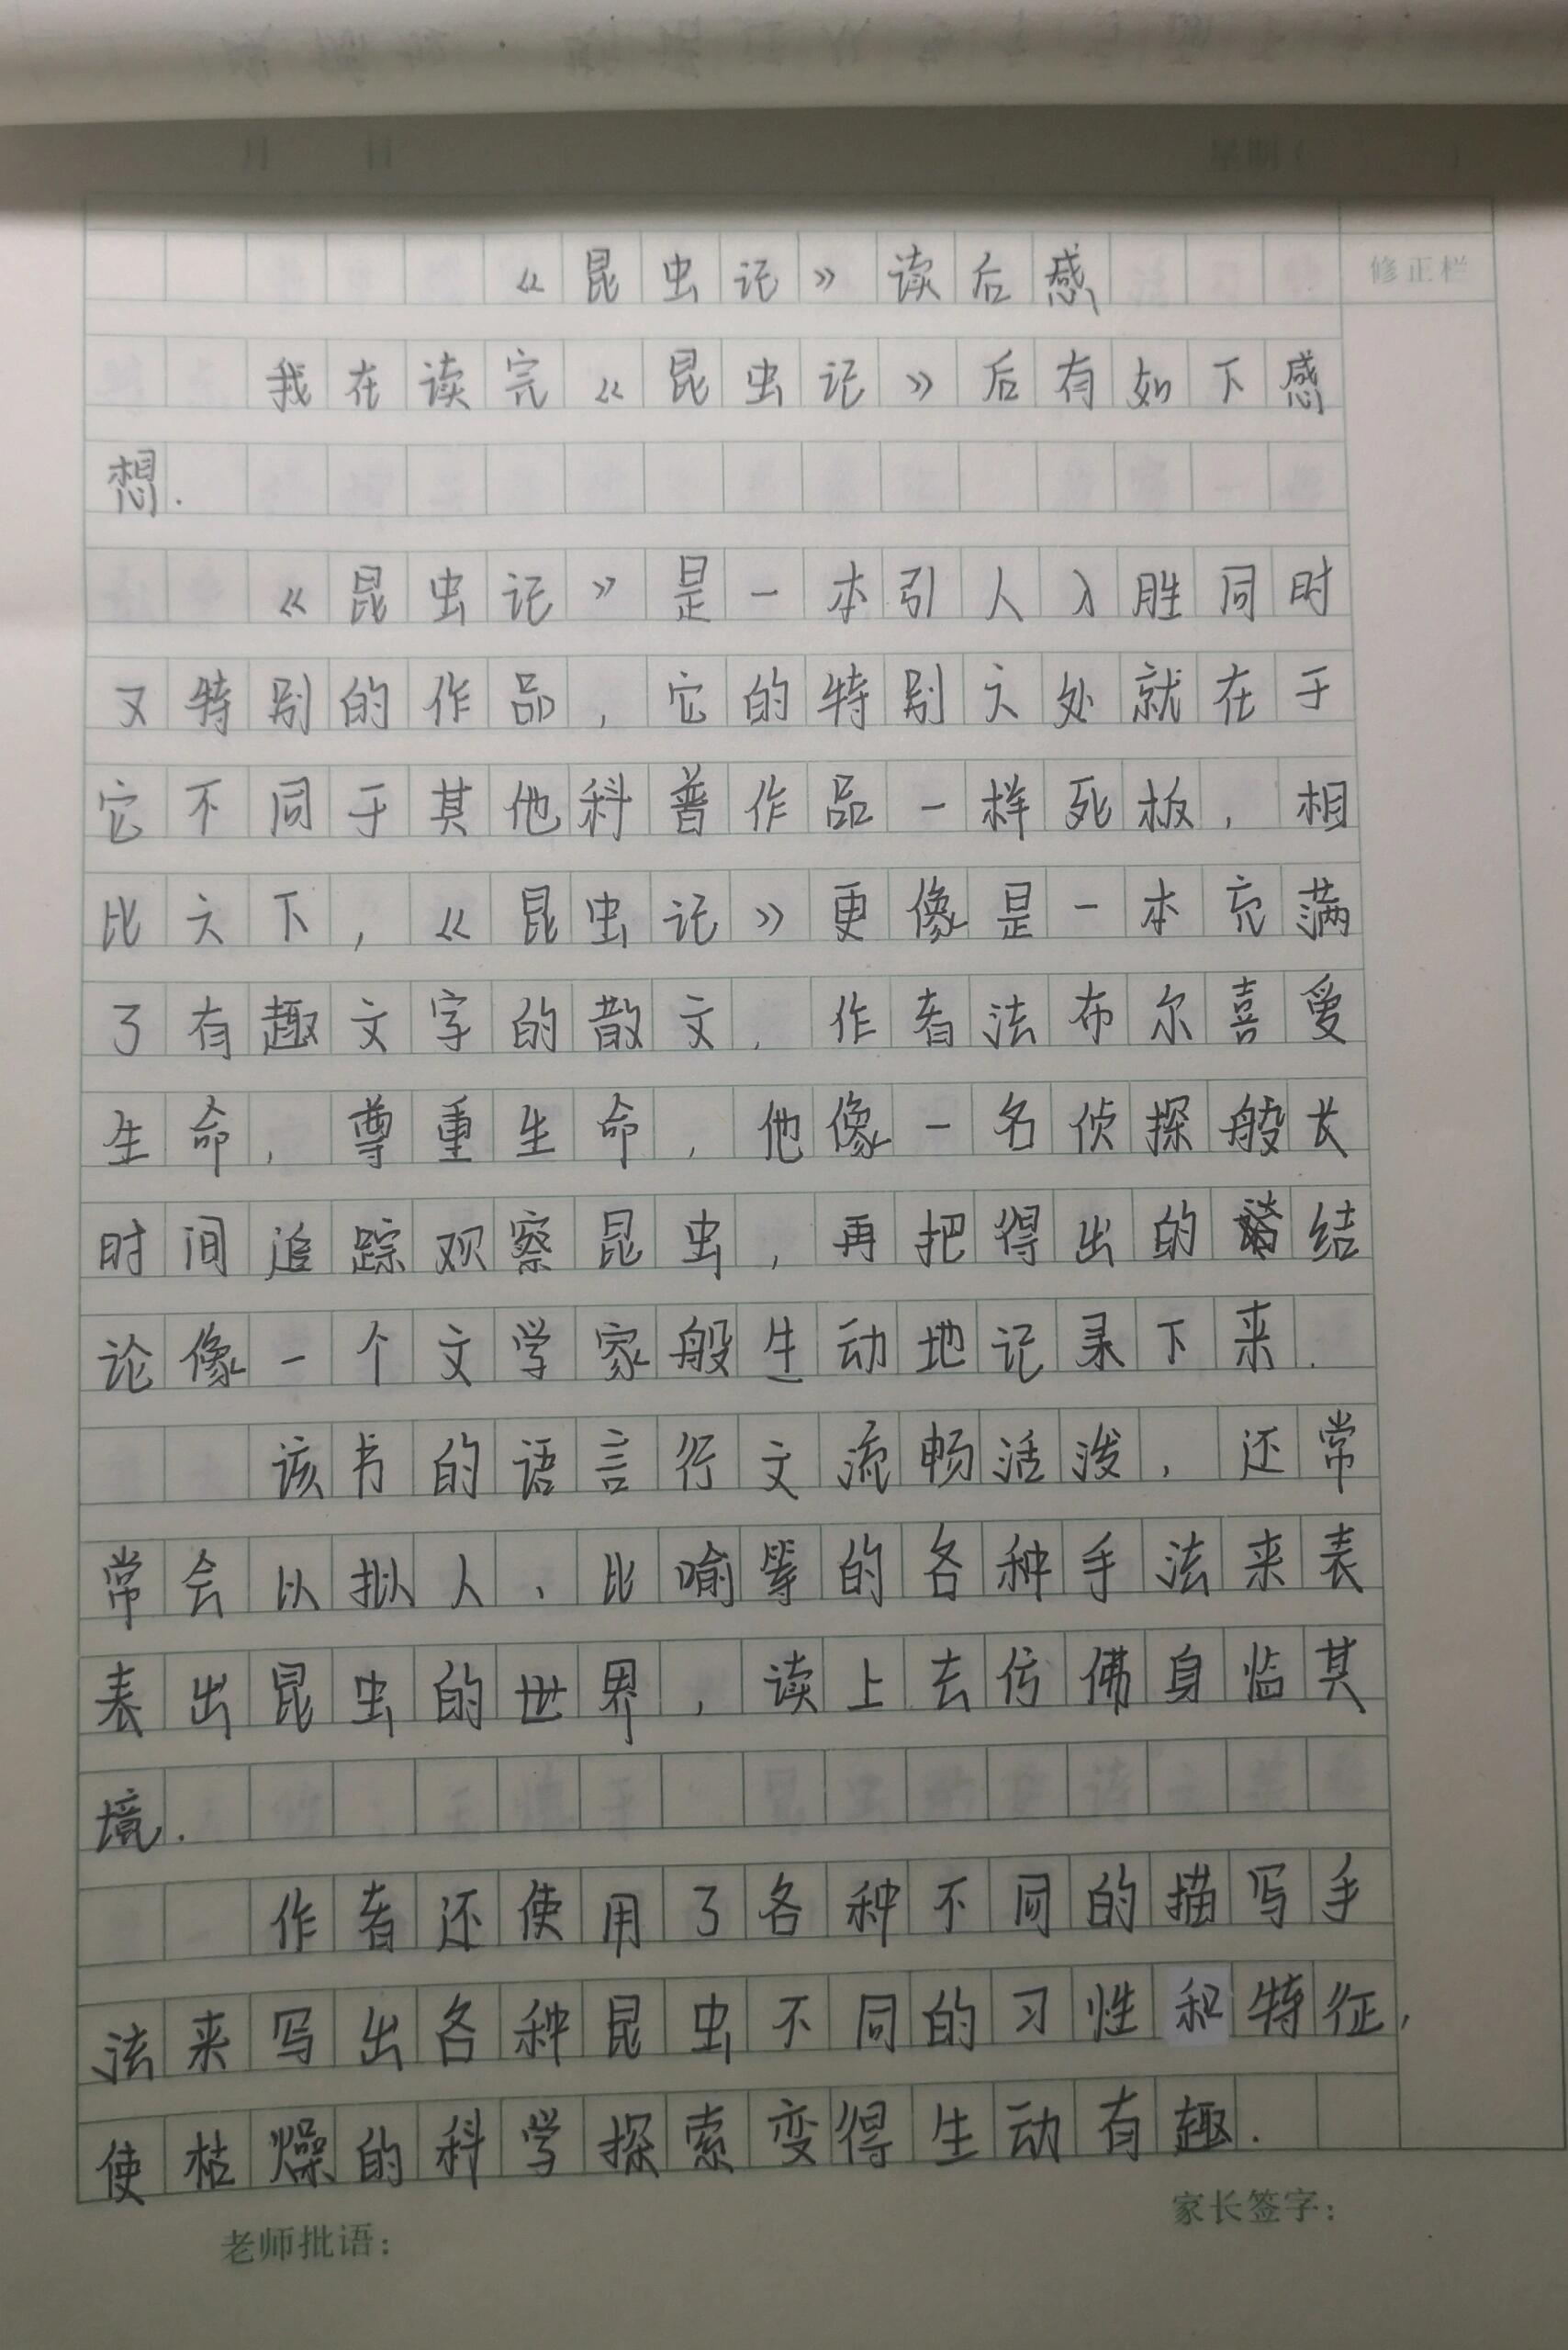 月 日 星期（ ）
《昆虫记》读后感
修正栏
我在读完《昆虫记》后有如下感
想.
《昆虫记》是一本引人入胜同时
又特别的作品，它的特别之处就在于
它不同于其他科普作品一样死板，相
比之下，《昆虫记》更像是一本充满
了有趣文字的散文．作者法布尔喜爱
生命，尊重生命，他像一名侦探般长
时间追踪观察昆虫，再把得出的结
论像一个文学家般生动地记录下来．
该书的语言行文流畅活泼，还常
常会以拟人、比喻等的各种手法来表
表出昆虫的世界，读上去仿佛身临其
境．
作者还使用了各种不同的描写手
法来写出各种昆虫不同的习性和特征，
使枯燥的科学探索变得生动有趣．
家长签字：
老师批语：